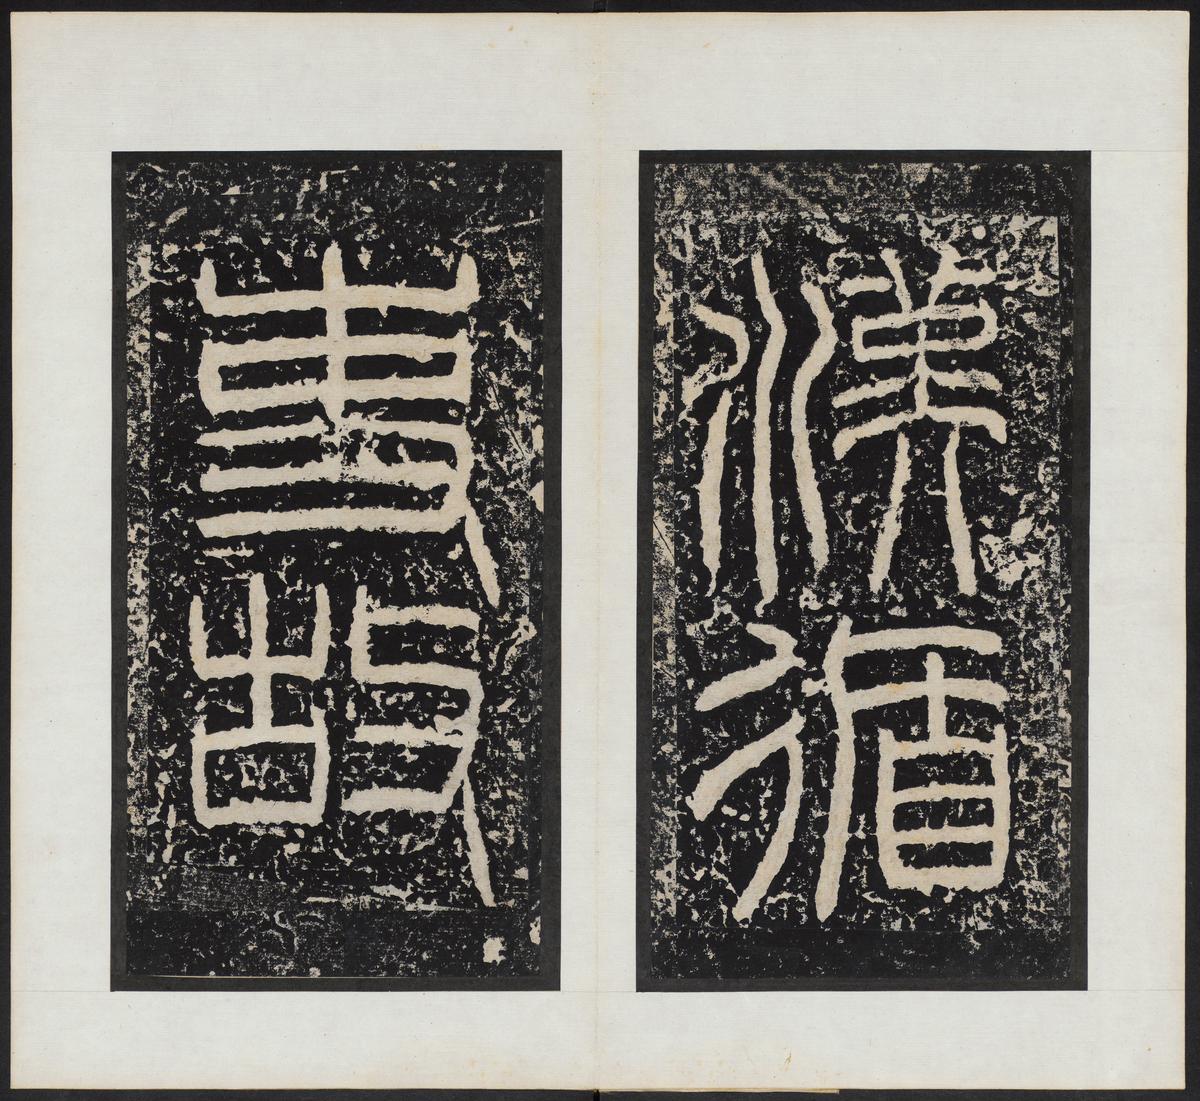 漢循
吏故